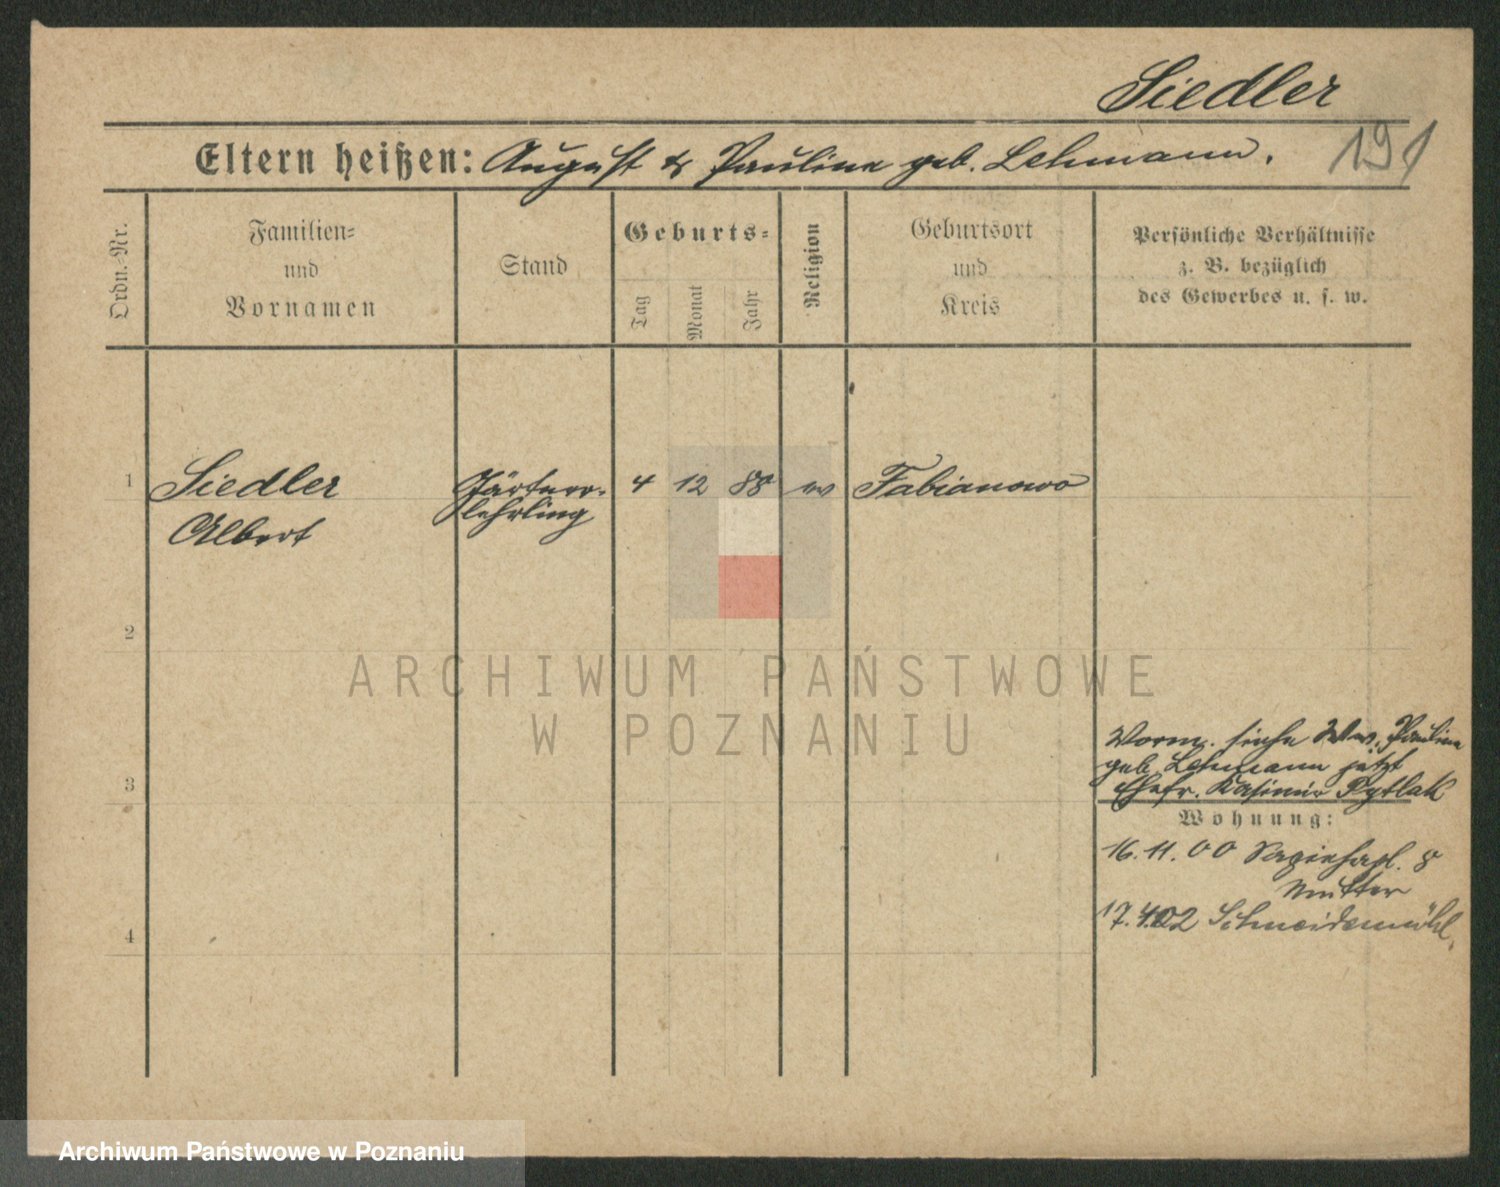 Siedler
Eltern heißen: August & Pauline geb. Lehmann.
191
Ordn.-Nr.
Familien-
und
Vornamen
Stand
Geburts-
Tag
Monat
Jahr
Religion
Geburtsort
und
Kreis
Persönliche Verhältnisse
z. B. bezüglich
des Gewerbes u. s. w.
1 Siedler Gärtner- 4 12 88 Fabianowo
Albert lehrling
2
ARCHIWUM PAŃSTWOWE
W POZNANIU
Vorm. siehe Ww. Pauline
geb. Lehmann jetzt
3 Ehefr. Kasimir Rytlak
Wohnung:
16. 11. 00 Sapiehapl. 8
Mutter
17. 4. 02 Schneidemühl.
4
Archiwum Państwowe w Poznaniu